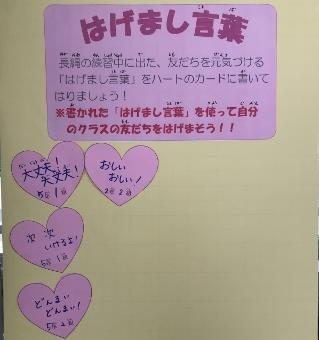 はげまし言葉
長縄の練習中に出た、友だちを元気づける
「はげまし言葉」をハートのカードに書いて
はりましょう！
※書かれた「はげまし言葉」を使って自分
のクラスの友だちをはげまそう！！
大丈夫！
大丈夫！
5年1組
おしい
おしい！
2年2組
次 次
いけるよ！
5年1組
どんまい
どんまい！
5年2組